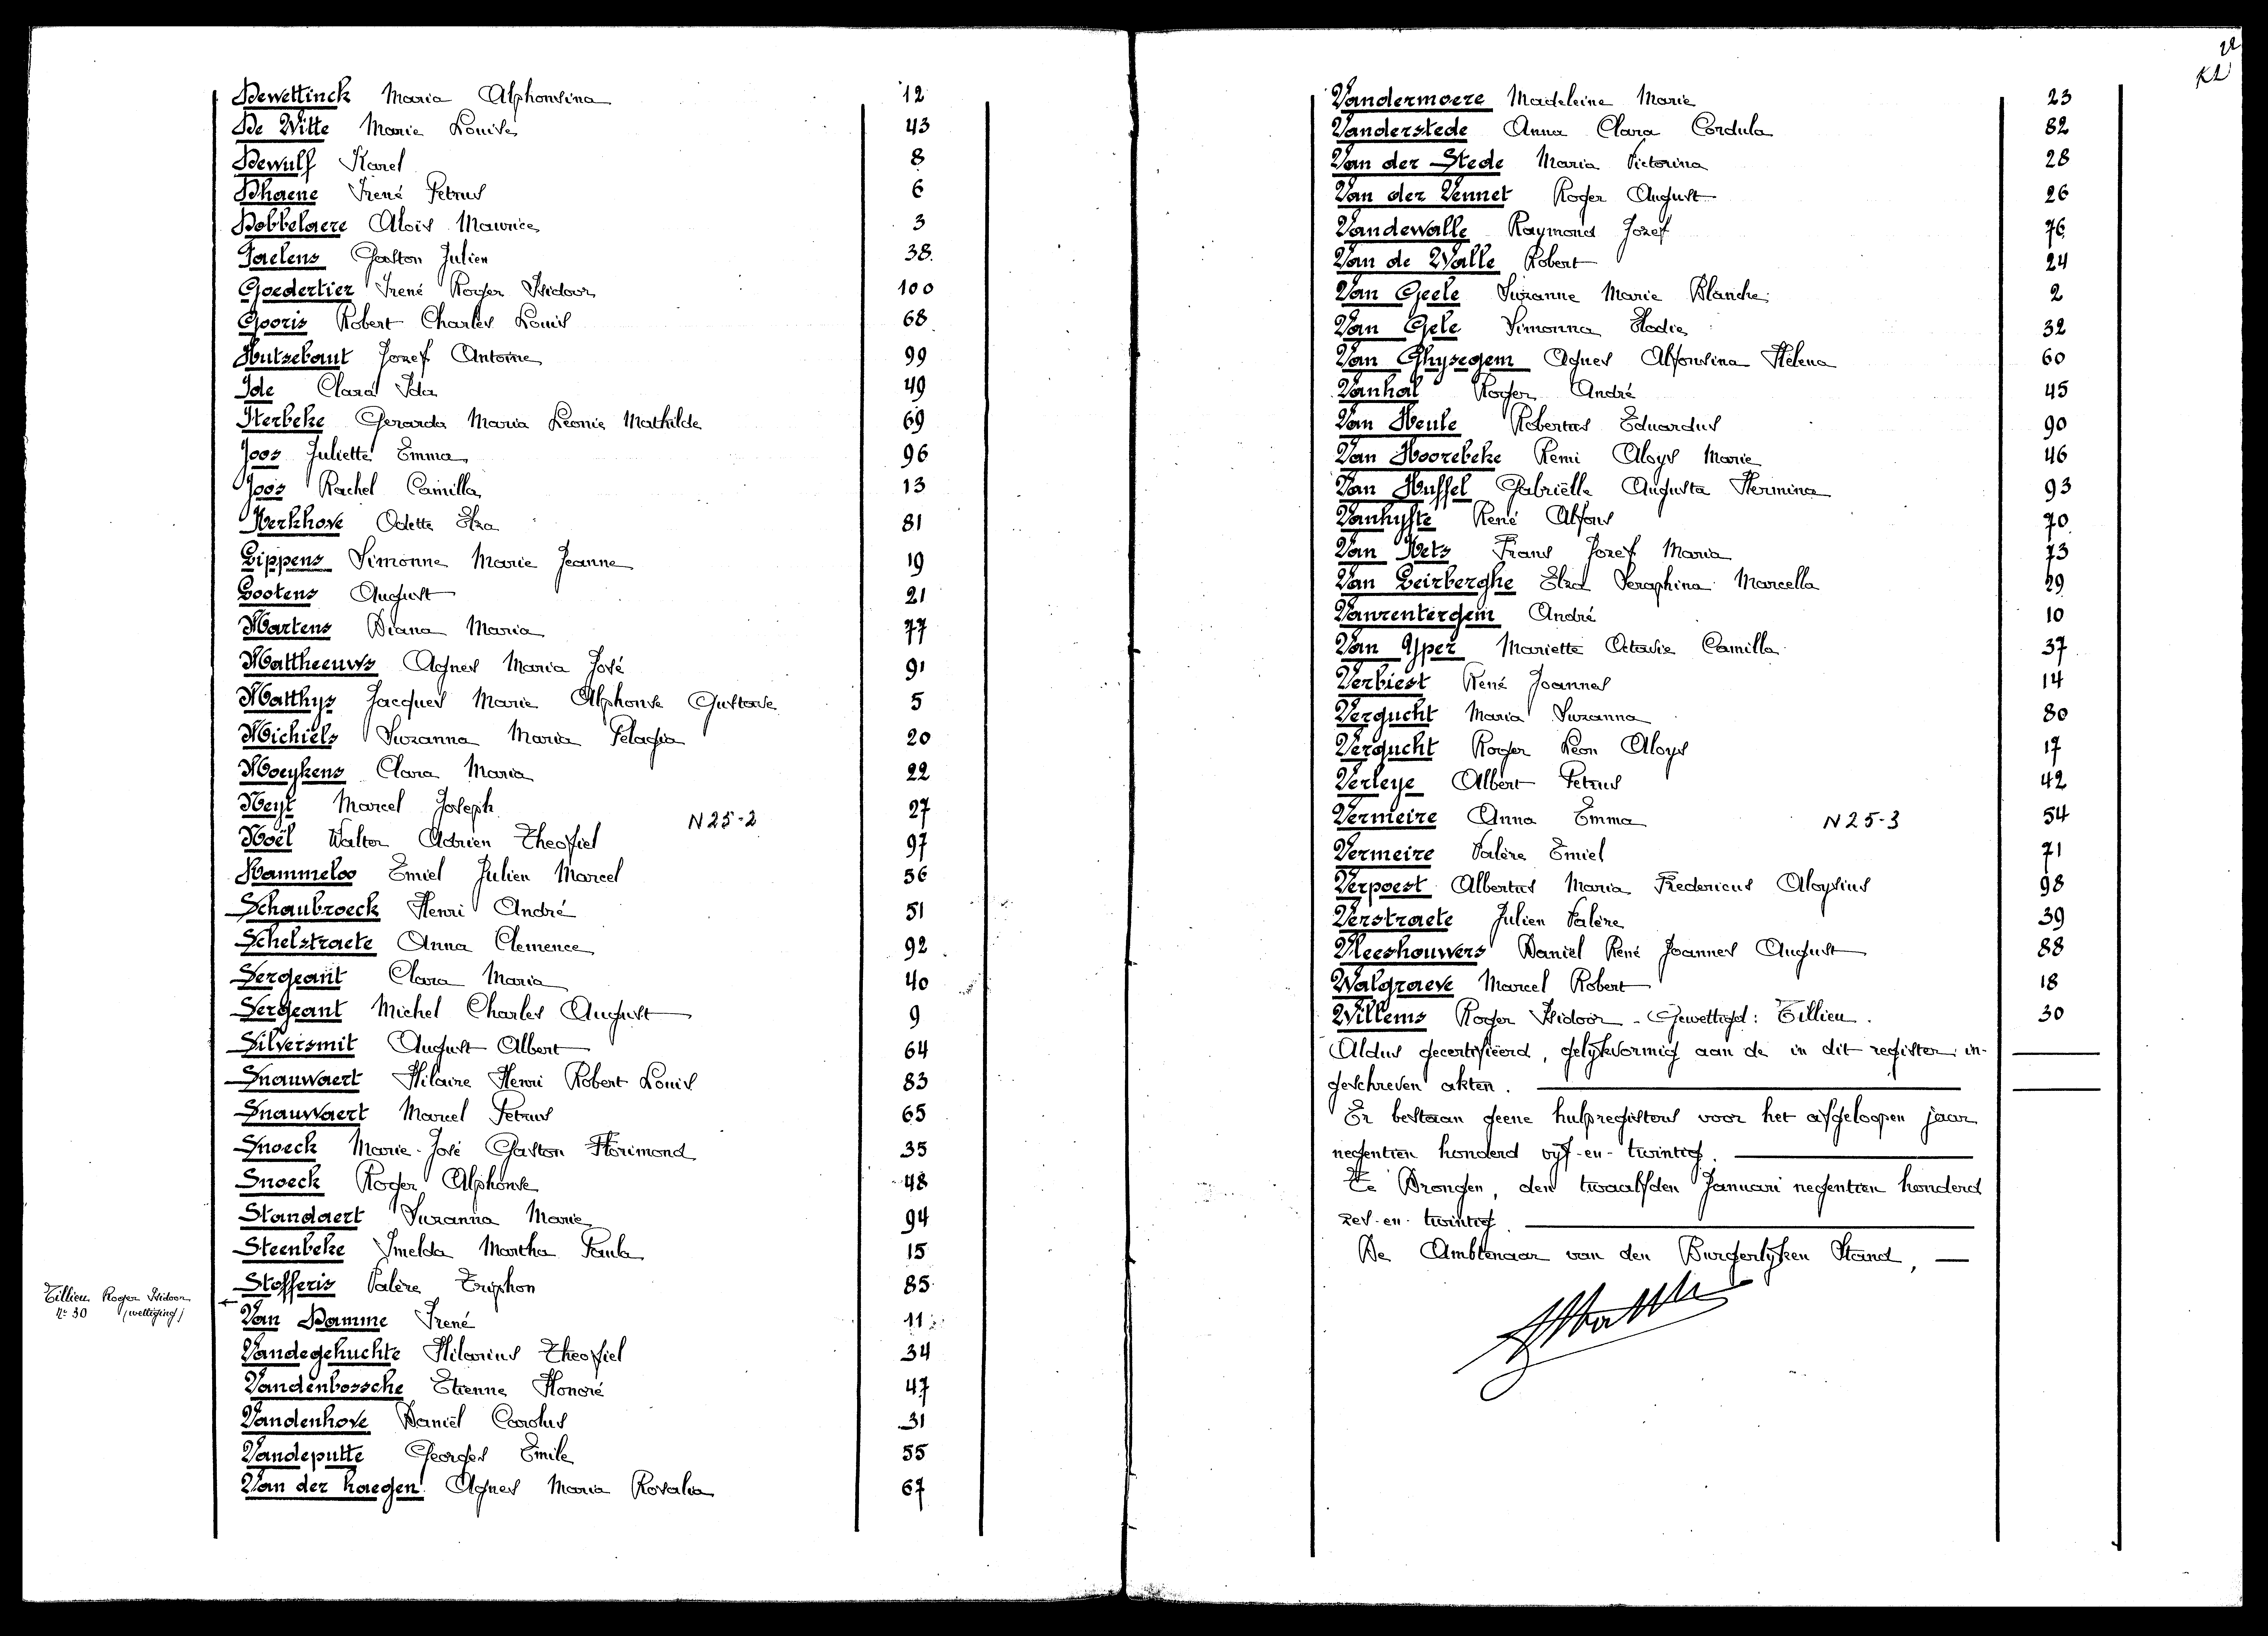 Dewettinck Maria Alphonsina 12
De Witte Marie Louise 43
Dewulf Karel 8
Dhaene Irené Petrus 6
Dobbelaere Aloïs Maurice 3
Faelens Gaston Julien 38
Goedertier Irené Roger Isidoor 100
Gooris Robert Charles Louis 68
Hutsebaut Jozef Antoine 99
Ide Clara Ida 49
Iterbeke Gerarda Maria Leonie Mathilde 69
Joos Juliette Emma 96
Joos Rachel Camilla 13
Kerkhove Odette Elza 81
Lippens Simonne Marie Jeanne 19
Lootens August 21
Martens Diana Maria 77
Mattheeuws Agnes Maria José 91
Matthys Jacques Marie Alphonse Gustave 5
Michiels Suzanna Maria Pelagia 20
Moeykens Clara Maria 22
Neyt Marcel Joseph 27
N 25-2
Noël Walter Adrien Theofiel 97
Rammeloo Emiel Julien Marcel 56
Schaubroeck Henri André 51
Schelstraete Anna Clemence 92
Sergeant Clara Maria 40
Sergeant Michel Charles August 9
Silversmit August Albert 64
Snauwaert Hilaire Henri Robert Louis 83
Snauwaert Marcel Petrus 65
Snoeck Marie-José Gaston Florimond 35
Snoeck Roger Alphonse 48
Standaert Suzanna Marie 94
Steenbeke Imelda Martha Paula 15
Stofferis Valère Triphon 85
Tillieu Roger Isidoor
Nr 30 (wettiging)
Van Damme Irené 11
Vandegehuchte Hilarius Theofiel 34
Vandenbossche Etienne Honoré 47
Vandenhove Daniël Carolus 31
Vandeputte Georges Emile 55
Van der haegen Agnes Maria Rosalia 67
Vandermoere Madeleine Marie 23
Vanderstede Anna Clara Cordula 82
Van der Stede Maria Victorina 28
Van der Vennet Roger August 26
Vandewalle Raymond Jozef 76
Van de Walle Robert 24
Van Geele Suzanne Marie Blanche 2
Van Gele Simonna Elodie 32
Van Ghysegem Agnes Alfonsina Helena 60
Vanhal Roger André 45
Van Heule Robertus Eduardus 90
Van Hoorebeke Remi Aloys Marie 46
Van Huffel Gabriëlle Augusta Hermina 93
Vanhyfte René Alfons 70
Van Kets Frans Jozef Maria 73
Van Leirberghe Elza Seraphina Marcella 29
Vanrentergem André 10
Van Yper Mariette Octavie Camilla 37
Verbiest René Joannes 14
Vergucht Maria Suzanna 80
Vergucht Roger Leon Aloys 17
Verleye Albert Petrus 42
Vermeire Anna Emma 54
N 25-3
Vermeire Valère Emiel 71
Verpoest Albertus Maria Fredericus Aloysius 98
Verstraete Julien Valère 39
Vleeshouwers Daniël René Joannes August 88
Walgraeve Marcel Robert 18
Willems Roger Isidoor - Gewettigd: Tillieu. 30
Aldus gecertifieerd, gelijkvormig aan de in dit register in-
geschreven akten.
Er bestaan geene hulpregisters voor het afgeloopen jaar
negentien honderd vijf-en-twintig.
Te Drongen, den twaalfden Januari negentien honderd
zes-en-twintig.
De Ambtenaar van den Burgerlijken Stand,